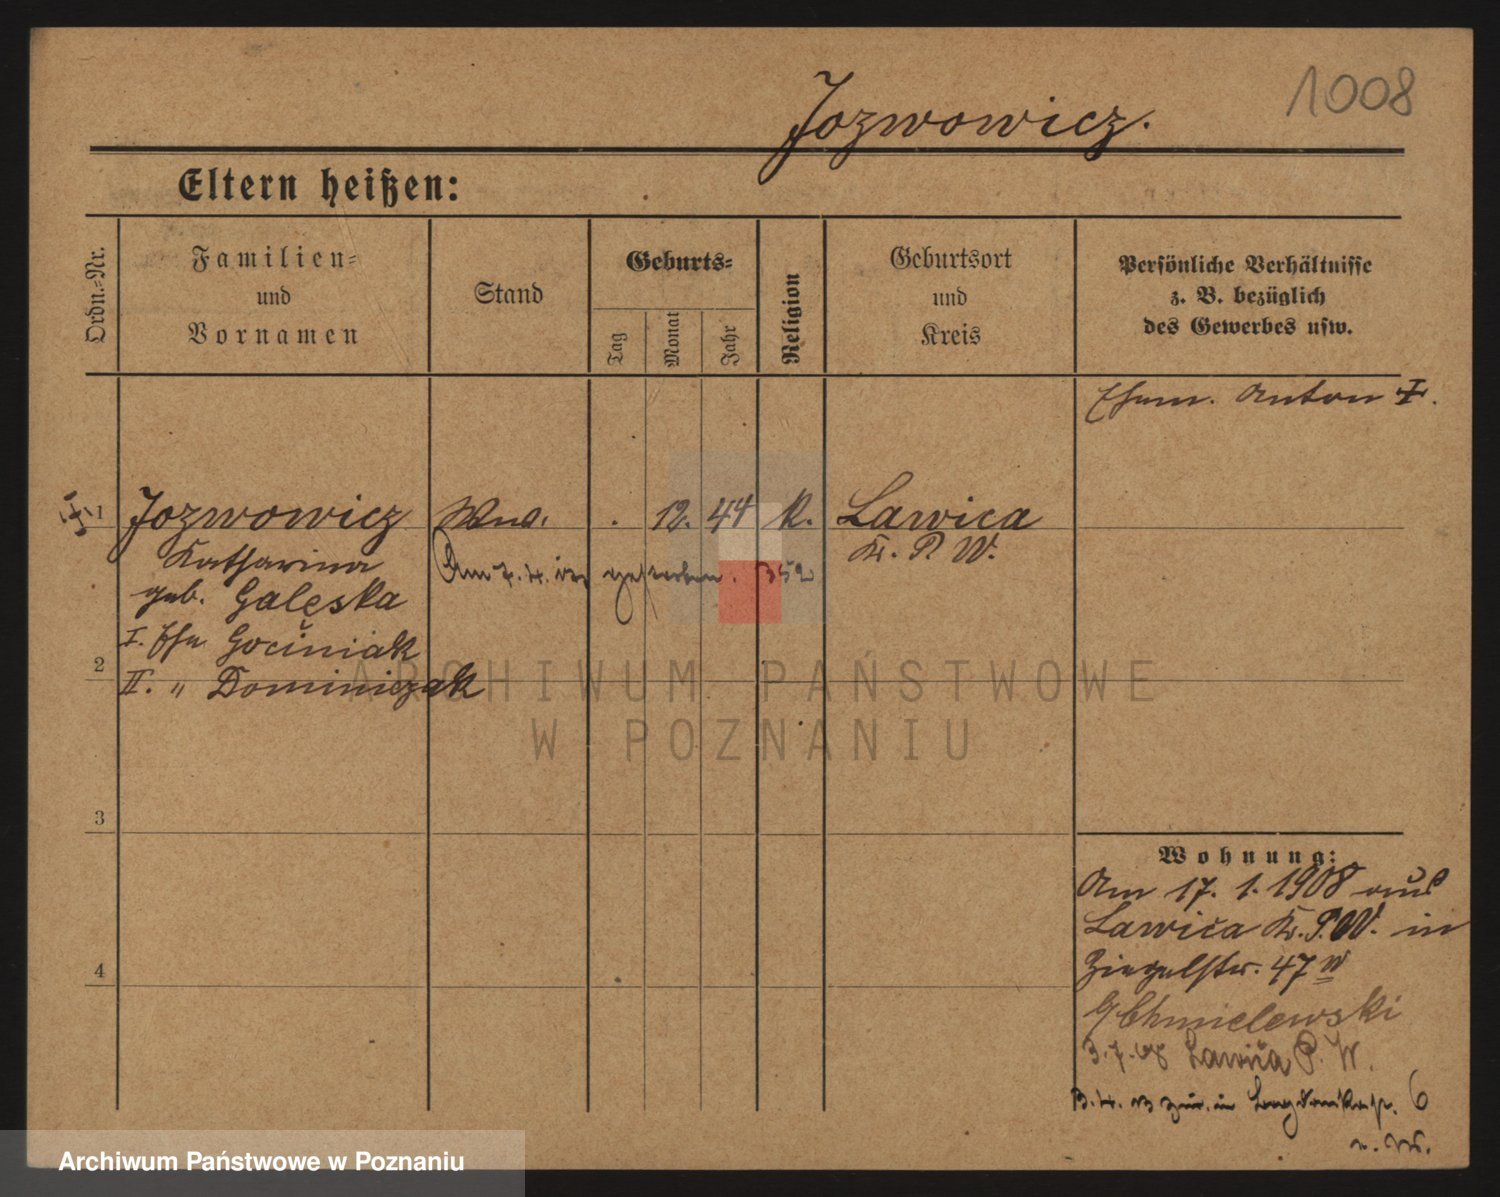 1008
Jozwowicz.
Eltern heißen:
Ordn.-Nr.
Familien-
und
Vornamen
Stand
Geburts-
Tag
Monat
Jahr
Religion
Geburtsort
und
Kreis
Persönliche Verhältnisse
z. B. bezüglich
des Gewerbes usw.
Ehem. Anton I.
1 Jozwowicz Wwe. . 12. 44 k. Lawica
Katharina
Kr. P. W.
Am 7. 4. gestorben. 352
geb. Galęska
I. Ehe Gociniak
2
II. " Dominiczak
ARCHIWUM PAŃSTWOWE
W POZNANIU
3
4
Wohnung:
Am 17. 1. 1908 aus
Lawica Kr. P. W. in
Ziegelstr. 47
Chmielewski
3. 7. 08 Lawica P. W.
6
Archiwum Państwowe w Poznaniu